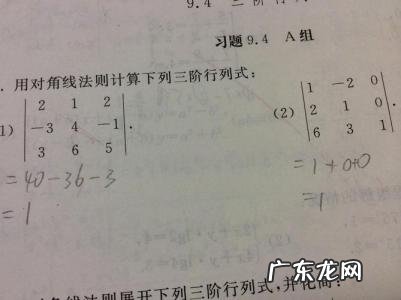 9.4 三阶行
习题9.4 A组
. 用对角线法则计算下列三阶行列式:
1) | 2 1 2 | (2) | 1 -2 0 |
| -3 4 -1 | . | 2 1 0 | .
| 3 6 5 | | 6 3 1 |
=40-36-3 =1+0+0
=1 =1
角线法则展开下列三阶行列式,并化简:
广东龙网